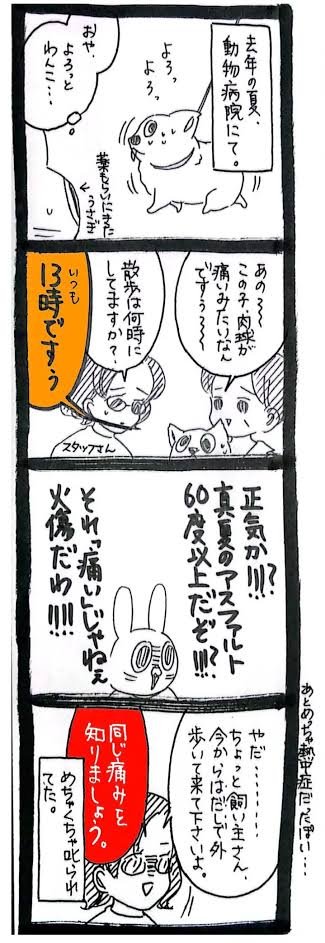 去年の夏、
動物病院にて。
よろっ
よろっ
おや、
よろっと
わんこ…
薬もらいにきた
うさぎ
あの〜〜
この子、肉球が
痛いみたいなん
ですぅ〜〜
散歩は何時に
してますか?
いつも
13時ですぅ
スタッフさん
正気か!!!?
真夏のアスファルト
60度以上だぞ!!!?
それっ「痛い」じゃねぇ
火傷だわ!!!!
あとめっちゃ熱中症だったっぽい…
やだ………
ちょっと飼い主さん、
今からはだしで外
歩いて来て下さいよ。
同じ痛みを
知りましょう。
めちゃくちゃ叱られ
てた。